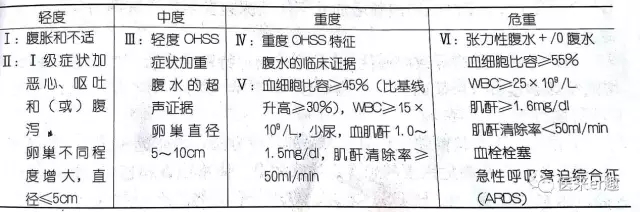 轻度
Ⅰ：腹胀和不适
Ⅱ：Ⅰ级症状加
恶心、呕吐
和（或）腹
泻
卵巢不同程
度增大，直
径≤5cm
中度
Ⅲ：轻度 OHSS
症状加重
腹水的超
声证据
卵巢直径
5～10cm
重度
Ⅳ：重度 OHSS 特征
腹水的临床证据
Ⅴ：血细胞比容≥45%（比基线
升高≥30%），WBC≥15×
10⁹/L，少尿，血肌酐 1.0～
1.5mg/dl，肌酐清除率≥
50ml/min
危重
Ⅵ：张力性腹水＋/0 腹水
血细胞比容≥55%
WBC≥25×10⁹/L
肌酐≥1.6mg/dl
肌酐清除率<50ml/min
血栓栓塞
急性呼吸窘迫综合征
(ARDS)